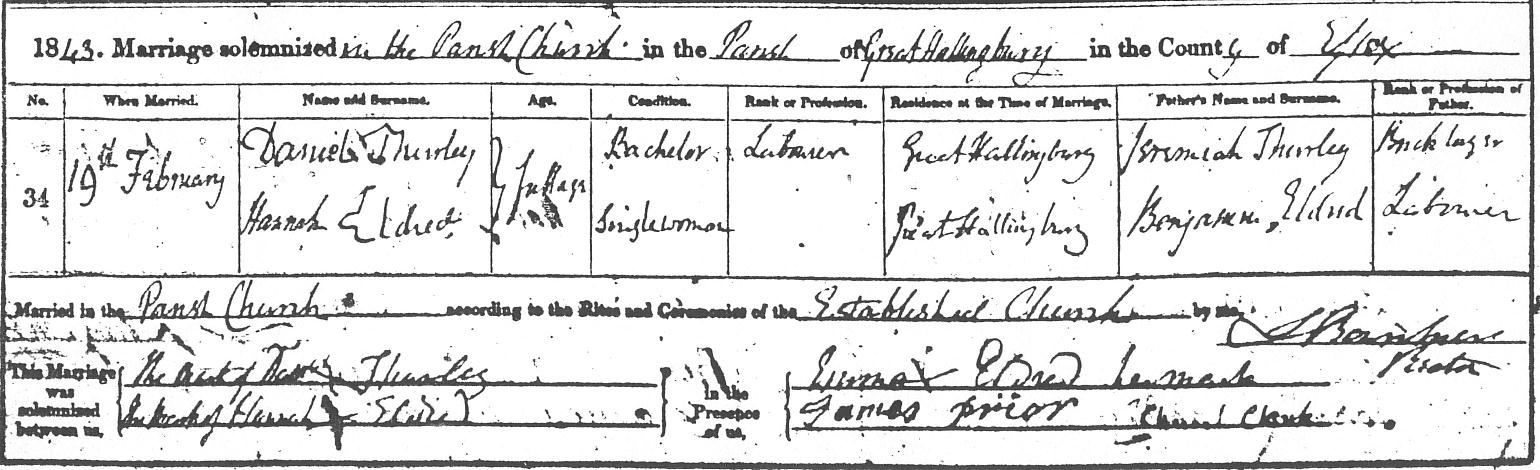 1843. Marriage solemnized in the Parish Church in the Parish of Great Hallingbury in the County of Essex
No. When Married. Name and Surname. Age. Condition. Rank or Profession. Residence at the Time of Marriage. Father's Name and Surname. Rank or Profession of Father.
34 19th February Daniel Thurley full age Bachelor Labourer Great Hallingbury Jeremiah Thurley Bricklayer
Hannah Eldred Singlewoman Great Hallingbury Benjamin Eldred Labourer
Married in the Parish Church according to the Rites and Ceremonies of the Established Church by me,
This Marriage was solemnized between us, The mark of Daniel X Thurley
The mark of Hannah X Eldred
in the Presence of us, Emma X Eldred her mark
James prior Church Clerk